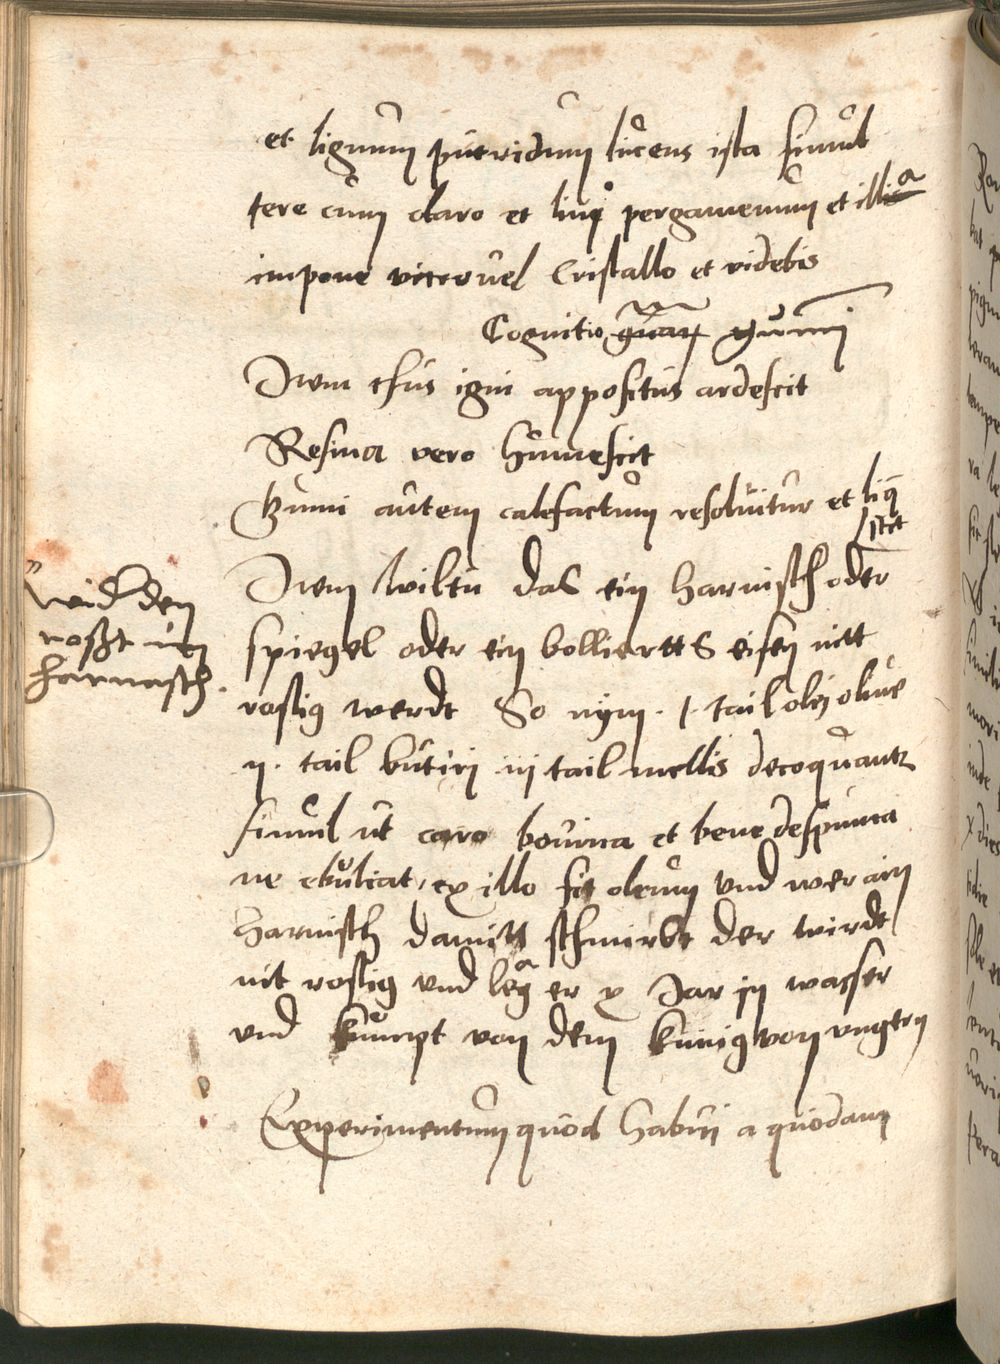 et lignum putridum lucens ista simul
tere cum claro et linq pergamenum et illia
impone vitro vel Cristallo et videbis
Cognitio guar gummi
Item thus igni appositus ardescit
Resina vero humescit
Gumi autem calefactum resoluitur et liq
scit
Item wiltu das ein harnisch oder
spiegel oder ein bolliertts eisen nitt
rostig werdt So nym . 1 . tail olei oliue
ij . tail butiri iij tail mellis decoquantr
simul ut caro bouina et bene despuma
ne ebuliat, ex illo fit oleum und wer ain
harnisch damitt schmirbt der wirdt
nit rostig und leg er x Jar in wasser
und kumpt von dem kunig von vngern
Experimentum quod habui a quodam
wid den
rosst im
harnasch.